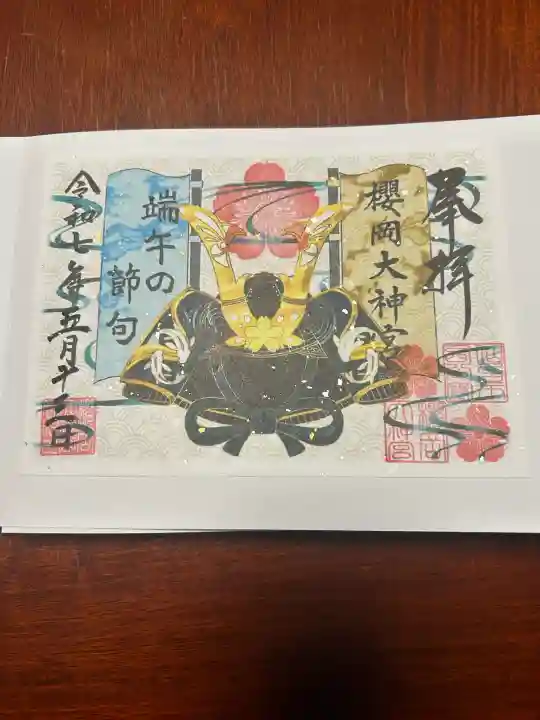 奉拝
櫻岡大神宮
端午の
節句
令和七年五月十二日